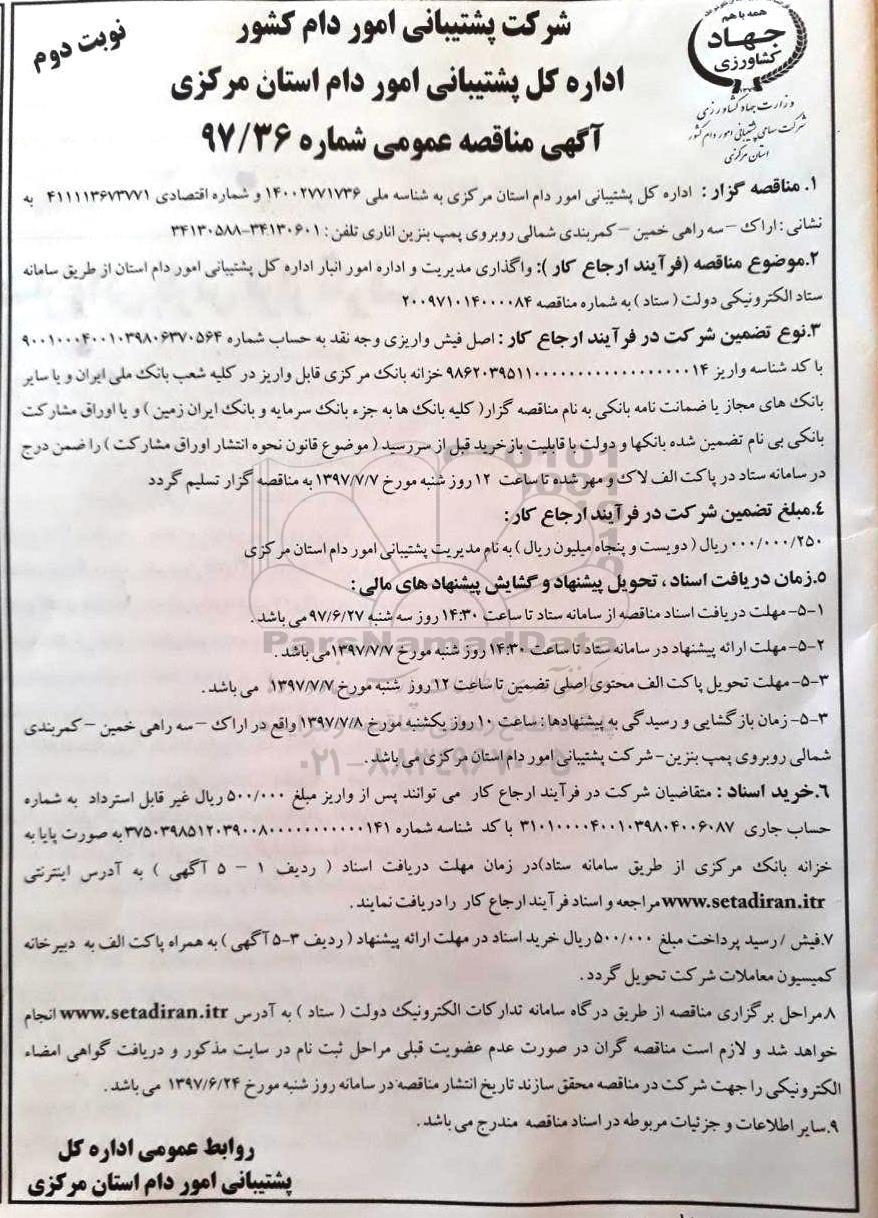 همه با هم
جهاد
کشاورزی
وزارت جهاد کشاورزی
شرکت سهامی پشتیبانی امور دام کشور
استان مرکزی
نوبت دوم
شرکت پشتیبانی امور دام کشور
اداره کل پشتیبانی امور دام استان مرکزی
آگهی مناقصه عمومی شماره ۹۷/۳۶
۱. مناقصه گزار : اداره کل پشتیبانی امور دام استان مرکزی به شناسه ملی ۱۴۰۰۲۷۷۱۷۳۶ و شماره اقتصادی ۴۱۱۱۱۳۶۷۳۷۷۱ به
نشانی : اراک – سه راهی خمین – کمربندی شمالی روبروی پمپ بنزین اناری تلفن : ۳۴۱۳۰۶۰۱-۳۴۱۳۰۵۸۸
۲.موضوع مناقصه (فرآیند ارجاع کار ): واگذاری مدیریت و اداره امور انبار اداره کل پشتیبانی امور دام استان از طریق سامانه
ستاد الکترونیکی دولت ( ستاد ) به شماره مناقصه ۲۰۰۹۷۱۰۱۴۰۰۰۰۸۴
۳.نوع تضمین شرکت در فرآیند ارجاع کار : اصل فیش واریزی وجه نقد به حساب شماره ۹۰۰۱۰۰۰۴۰۰۱۰۳۹۸۰۶۳۷۰۵۶۴
با کد شناسه واریز خزانه بانک مرکزی قابل واریز در کلیه شعب بانک ملی ایران و یا سایر
بانک های مجاز یا ضمانت نامه بانکی به نام مناقصه گزار( کلیه بانک ها به جزء بانک سرمایه و بانک ایران زمین ) و یا اوراق مشارکت
بانکی بی نام تضمین شده بانکها و دولت با قابلیت بازخرید قبل از سررسید ( موضوع قانون نحوه انتشار اوراق مشارکت ) را ضمن درج
در سامانه ستاد در پاکت الف لاک و مهر شده تا ساعت ۱۲ روز شنبه مورخ ۱۳۹۷/۷/۷ به مناقصه گزار تسلیم گردد
۴.مبلغ تضمین شرکت در فرآیند ارجاع کار :
۰۰۰/۰۰۰/۲۵۰ ریال ( دویست و پنجاه میلیون ریال ) به نام مدیریت پشتیبانی امور دام استان مرکزی
۵.زمان دریافت اسناد ، تحویل پیشنهاد و گشایش پیشنهاد های مالی :
۵-۱- مهلت دریافت اسناد مناقصه از سامانه ستاد تا ساعت ۱۴:۳۰ روز سه شنبه ۹۷/۶/۲۷ می باشد .
۵-۲- مهلت ارائه پیشنهاد در سامانه ستاد تا ساعت ۱۴:۳۰ روز شنبه مورخ ۱۳۹۷/۷/۷می باشد .
۵-۳- مهلت تحویل پاکت الف محتوی اصلی تضمین تا ساعت ۱۲ روز شنبه مورخ ۱۳۹۷/۷/۷ می باشد .
۵-۳- زمان بازگشایی و رسیدگی به پیشنهادها : ساعت ۱۰ روز یکشنبه مورخ ۱۳۹۷/۷/۸ واقع در اراک – سه راهی خمین – کمربندی
شمالی روبروی پمپ بنزین- شرکت پشتیبانی امور دام استان مرکزی می باشد .
۶.خرید اسناد : متقاضیان شرکت در فرآیند ارجاع کار می توانند پس از واریز مبلغ ۵۰۰/۰۰۰ ریال غیر قابل استرداد به شماره
حساب جاری ۳۱۰۱۰۰۰۰۴۰۰۱۰۳۹۸۰۴۰۰۶۰۸۷ با کد شناسه شماره به صورت پایا به
خزانه بانک مرکزی از طریق سامانه ستاد)در زمان مهلت دریافت اسناد ( ردیف ۱ – ۵ آگهی ) به آدرس اینترنتی
www.setadiran.itr مراجعه و اسناد فرآیند ارجاع کار را دریافت نمایند .
۷.فیش / رسید پرداخت مبلغ ۵۰۰/۰۰۰ ریال خرید اسناد در مهلت ارائه پیشنهاد ( ردیف ۳-۵ آگهی ) به همراه پاکت الف به دبیرخانه
کمیسیون معاملات شرکت تحویل گردد .
۸.مراحل برگزاری مناقصه از طریق درگاه سامانه تدارکات الکترونیک دولت ( ستاد ) به آدرس www.setadiran.itr انجام
خواهد شد و لازم است مناقصه گران در صورت عدم عضویت قبلی مراحل ثبت نام در سایت مذکور و دریافت گواهی امضاء
الکترونیکی را جهت شرکت در مناقصه محقق سازند تاریخ انتشار مناقصه در سامانه روز شنبه مورخ ۱۳۹۷/۶/۲۴ می باشد .
۹.سایر اطلاعات و جزئیات مربوطه در اسناد مناقصه مندرج می باشد .
روابط عمومی اداره کل
پشتیبانی امور دام استان مرکزی
ParsNamadData
۰۲۱-۸۸۳۴۹۶۷۰-۵